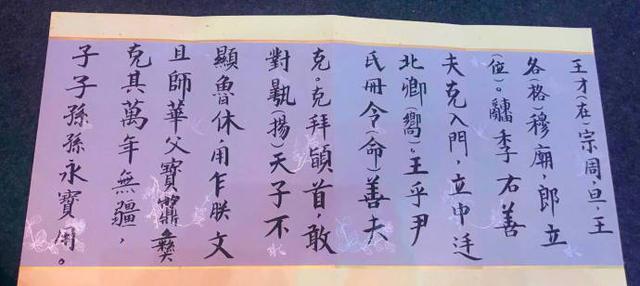 王才(在)宗周,旦,王
各(格)穆廟,郎立
(位)。𤔲季右善
夫克入門,立中廷
北卿(嚮)。王乎尹
氏冊令(命)善夫
克。克拜䭫首,敢
對揚(揚)天子不
顯魯休,用乍朕文
且師華父寶䵼彝
克其萬年無疆,
子子孫孫永寶用。